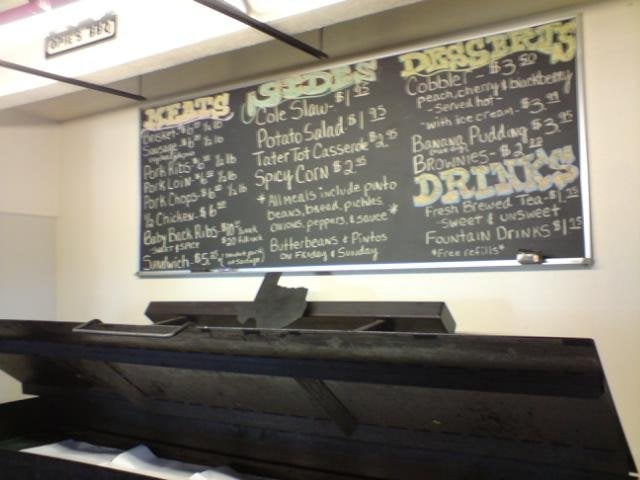 OPIE'S BBQ
MEATS
Brisket - $6 ½ lb
Sausage - $6 ½ lb
Pork Ribs - $6 ½ lb
Pork Loin - $6 ½ lb
Pork Chops - $6 ½ lb
½ Chicken - $6
Baby Back Ribs
sweet & spicy
Sandwich - $5
SIDES
Cole Slaw - $1.95
Potato Salad - $1.95
Tater Tot Casserole $2.95
Spicy Corn $2.95
*All meals include pinto
beans, bread, pickles,
onions, peppers, & sauce*
Butterbeans & Pintos
on Friday & Sunday
DESSERTS
Cobbler - $3.50
peach, cherry & blackberry
-Served hot-
-with ice cream - $3.99
Banana Pudding - $3.95
Brownies -
DRINKS
Fresh Brewed Tea - $1.75
-sweet & unsweet
Fountain Drinks $1.75
*Free refills*